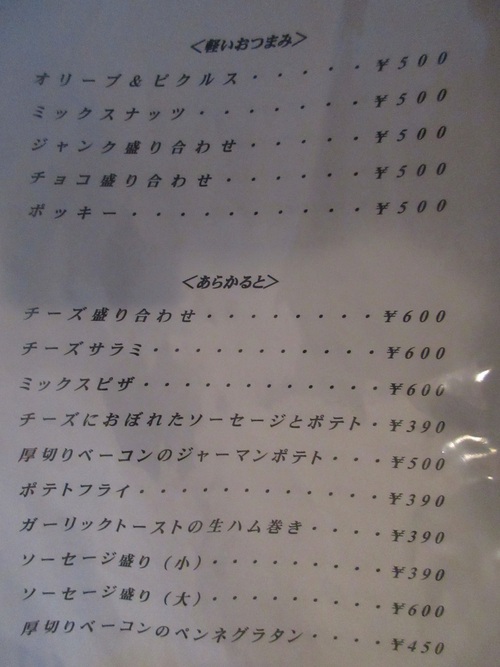 ＜軽いおつまみ＞
オリーブ＆ピクルス・・・・・・￥500
ミックスナッツ・・・・・・・・￥500
ジャンク盛り合わせ・・・・・・￥500
チョコ盛り合わせ・・・・・・・￥500
ポッキー・・・・・・・・・・・￥500
＜あらかると＞
チーズ盛り合わせ・・・・・・・・￥600
チーズサラミ・・・・・・・・・・￥600
ミックスピザ・・・・・・・・・・￥600
チーズにおぼれたソーセージとポテト・￥390
厚切りベーコンのジャーマンポテト・・・￥500
ポテトフライ・・・・・・・・・・・￥390
ガーリックトーストの生ハム巻き・・・・￥390
ソーセージ盛り（小）・・・・・・・・￥390
ソーセージ盛り（大）・・・・・・・・￥600
厚切りベーコンのペンネグラタン・・・・￥450